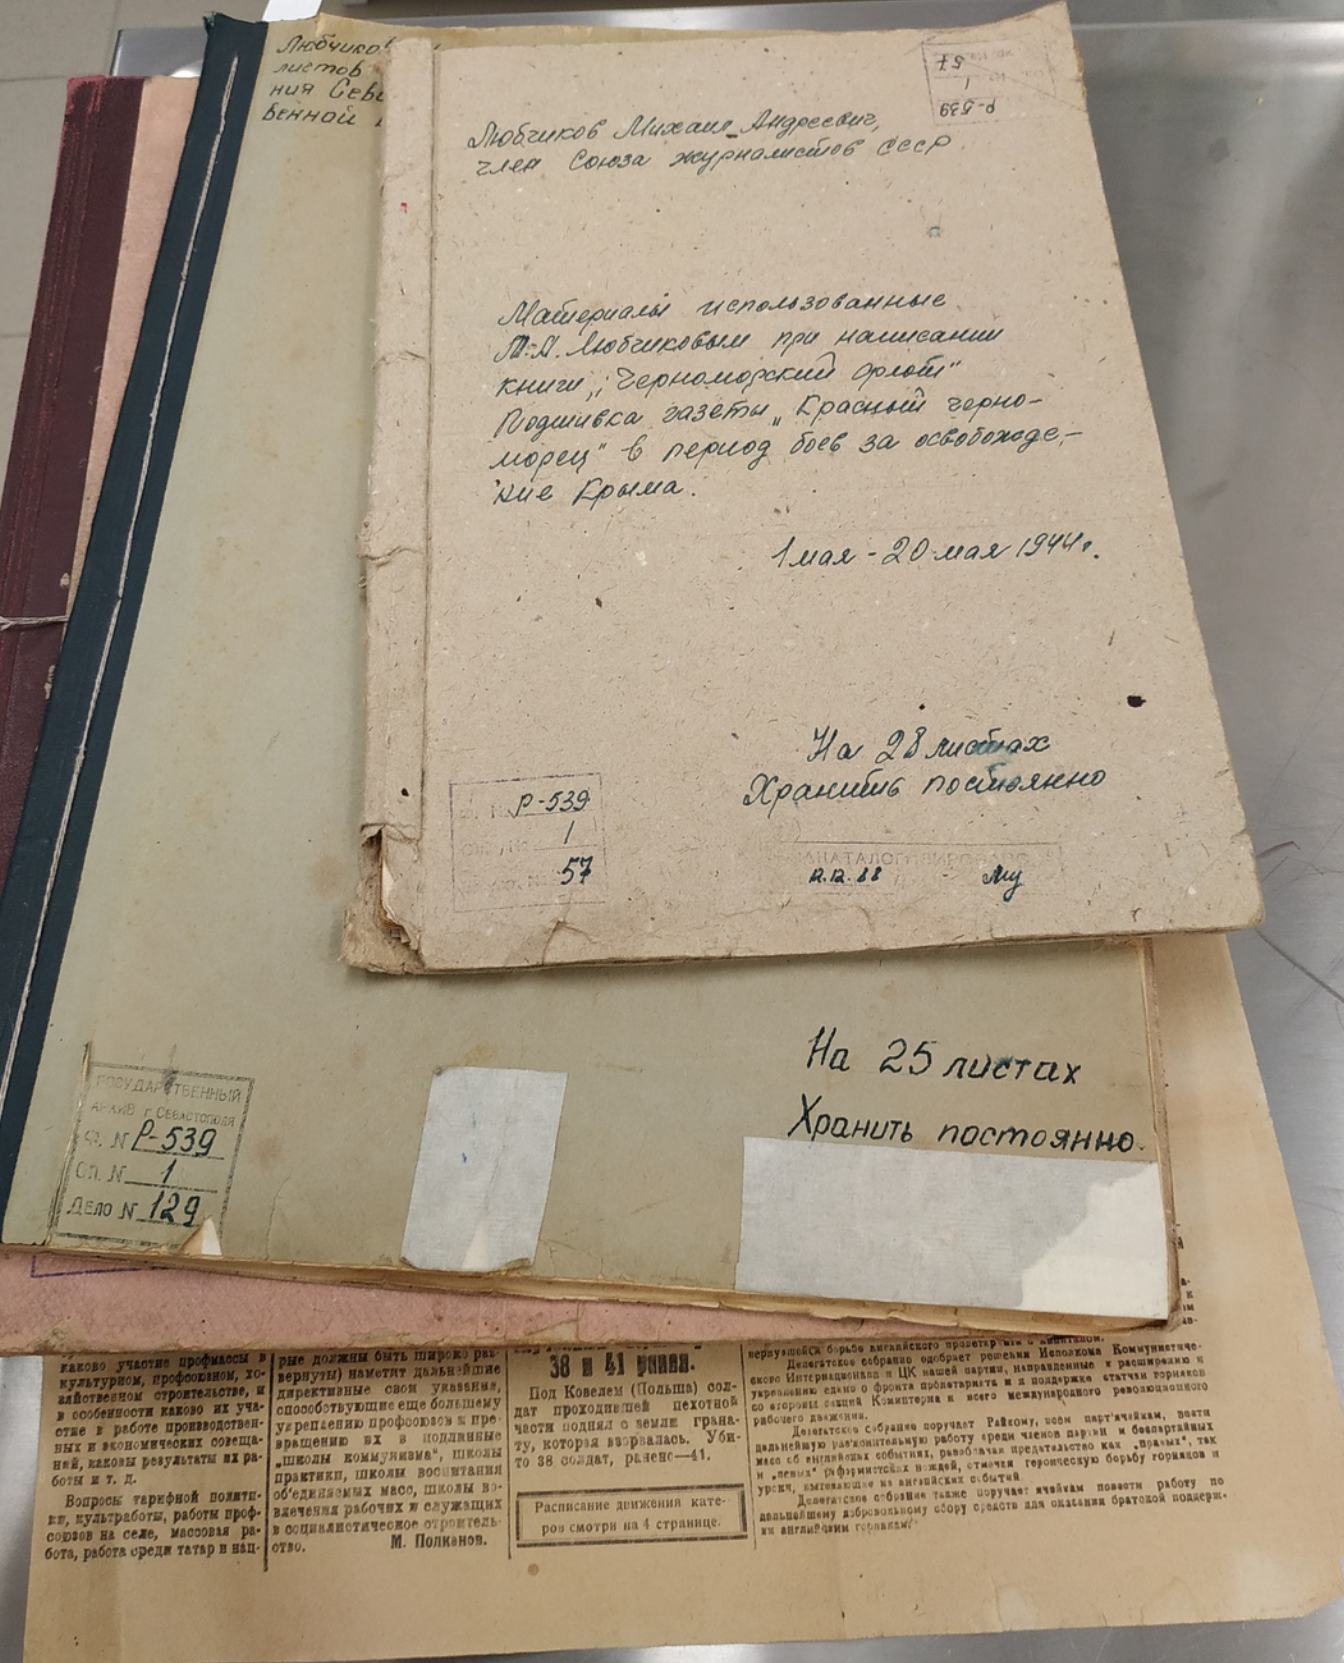 Любчиков
листов
ния
венной
Р-539
1
57
Любчиков Михаил Андреевич,
член Союза журналистов СССР
Материалы использованные
М.А. Любчиковым при написании
книги „Черноморский флот"
Подшивка газеты „Красный черно-
морец" в период боев за освобожде-
ние Крыма.
1 мая - 20 мая 1944 г.
На 28 листах
Хранить постоянно
Р-539
1
57
12.12.88
На 25 листах
Хранить постоянно.
ГОСУДАРСТВЕННЫЙ
АРХИВ г. СЕВАСТОПОЛЯ
Ф. N Р-539
ОП. N 1
ДЕЛО N 129
каково участие профмассы в
культурном, профсоюзном, хо-
зяйственном строительстве, и
в особенности каково их уча-
стие в работе производствен-
ных и экономических совеща-
ний, каковы результаты их ра-
боты и т. д.
Вопросы тарифной полити-
ки, культработы, работы проф-
союзов на селе, массовая ра-
бота, работа среди татар и нац-
рые должны быть широко раз-
вернуты) наметят дальнейшие
директивные свои указания,
способствующие еще большему
укреплению профсоюзов и пре-
вращению их в подлинные
„школы коммунизма", школы
практики, школы воспитания
об'единяемых масс, школы во-
влечения рабочих и служащих
в социалистическое строитель-
ство.
М. Полканов.
38 и 41 ранен.
Под Ковелем (Польша) сол-
дат проходившей пехотной
части поднял с земли грана-
ту, которая взорвалась. Уби-
то 38 солдат, ранено—41.
Расписание движения кате-
ров смотри на 4 странице.
вернувшейся борьбе английского пролетариата с капиталом.
Делегатское собрание одобряет решения Исполкома Коммунистиче-
ского Интернационала и ЦК нашей партии, направленные к расширению и
укреплению едино о фронта пролетариата и к поддержке стачки горняков
со стороны секций Коминтерна и всего международного революционного
рабочего движения.
Делегатское собрание поручает Райкому, всем парт'ячейкам, вести
дальнейшую раз'яснительную работу среди членов партии и беспартийных
масс об английских событиях, разоблачая предательство как „правых", так
и „левых" реформистских вождей, отмечая героическую борьбу горняков и
уроки, вытекающие из английских событий.
Делегатское собрание также поручает ячейкам повести работу по
дальнейшему добровольному сбору средств для оказания братской поддерж-
ки английским горнякам."